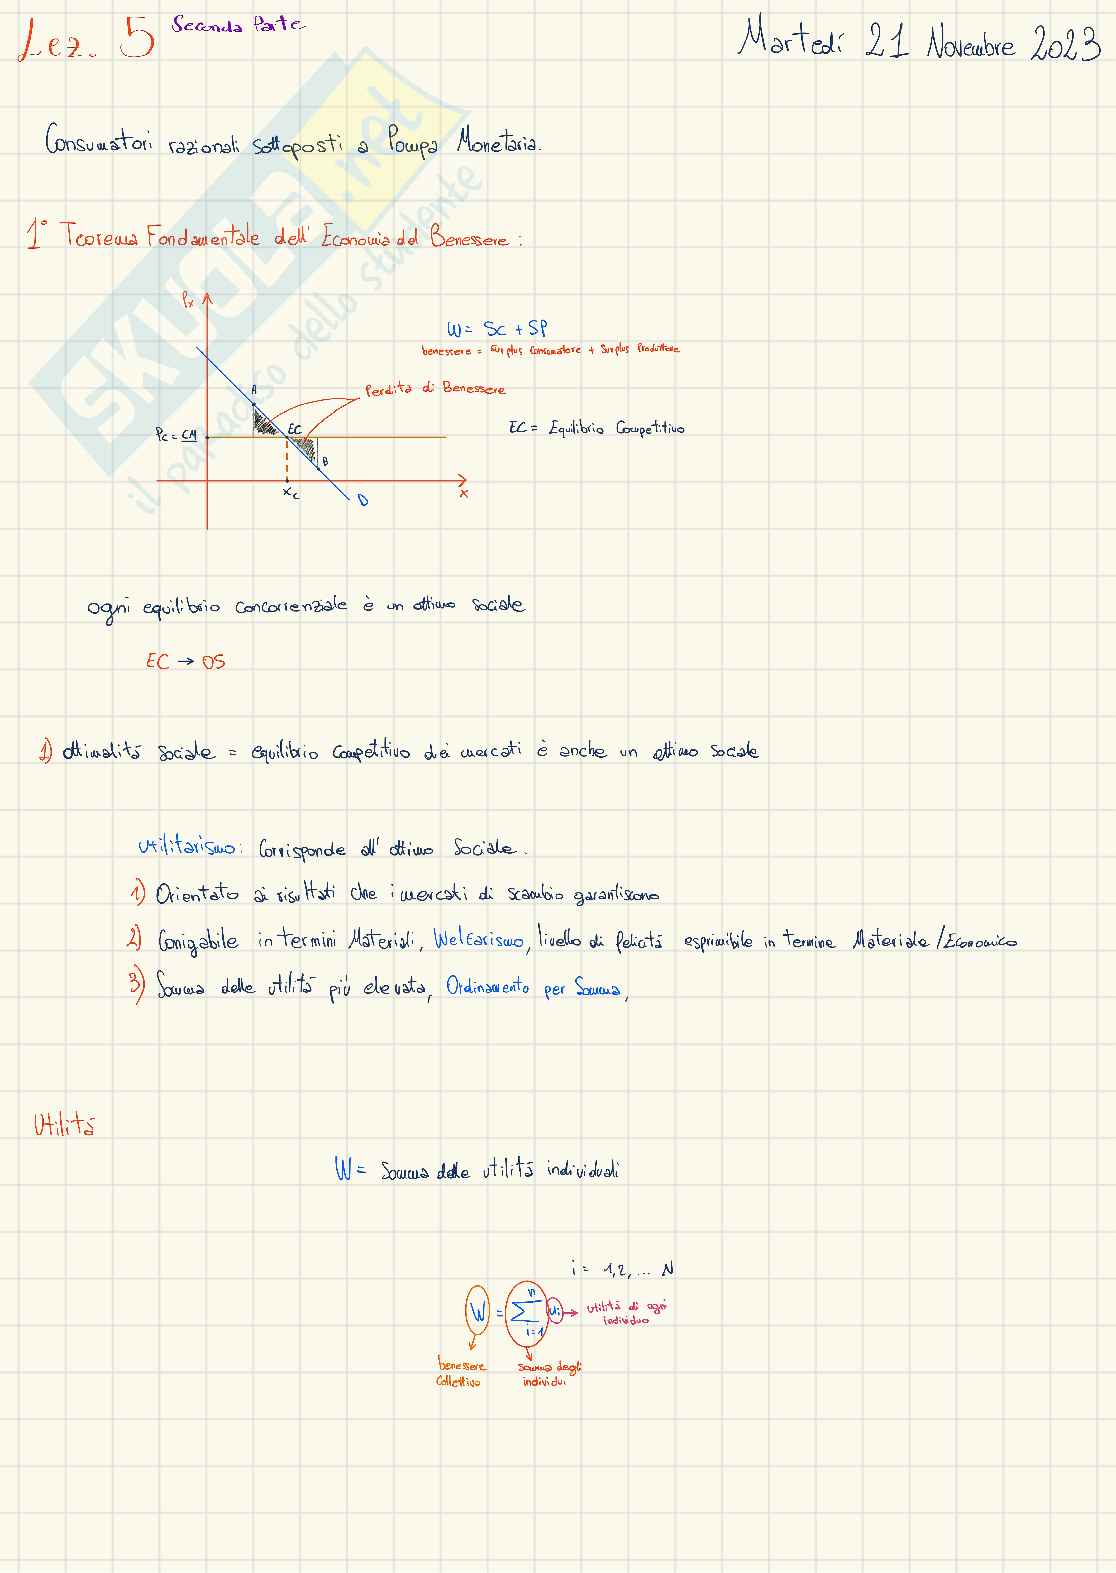 Lez. 5 Seconda Parte
Martedí 21 Novembre 2023
Consumatori razionali sottoposti a Pompa Monetaria.
1° Teorema Fondamentale dell' Economia del Benessere:
Px
W = SC + SP
benessere = Surplus Consumatore + Surplus Produttore
A
Perdita di Benessere
Pc = CM
EC
EC = Equilibrio Competitivo
B
Xc
D
X
ogni equilibrio concorrenziale è un ottimo sociale
EC → OS
1) Ottimalità sociale = equilibrio competitivo dei mercati è anche un ottimo sociale
Utilitarismo: Corrisponde all' ottimo Sociale.
1) Orientato ai risultati che i mercati di scambio garantiscono
2) Conigabile in termini Materiali, Welfarismo, livello di felicità esprimibile in termine Materiale/Economico
3) Somma delle utilità più elevata, Ordinamento per Somma,
Utilità
W = Somma delle utilità individuali
i = 1,2,... N
W = n ∑ i=1 ui → utilità di ogni
individuo
benessere
Collettivo
somma degli
individui
SKUOLA.net
il paradiso dello studente